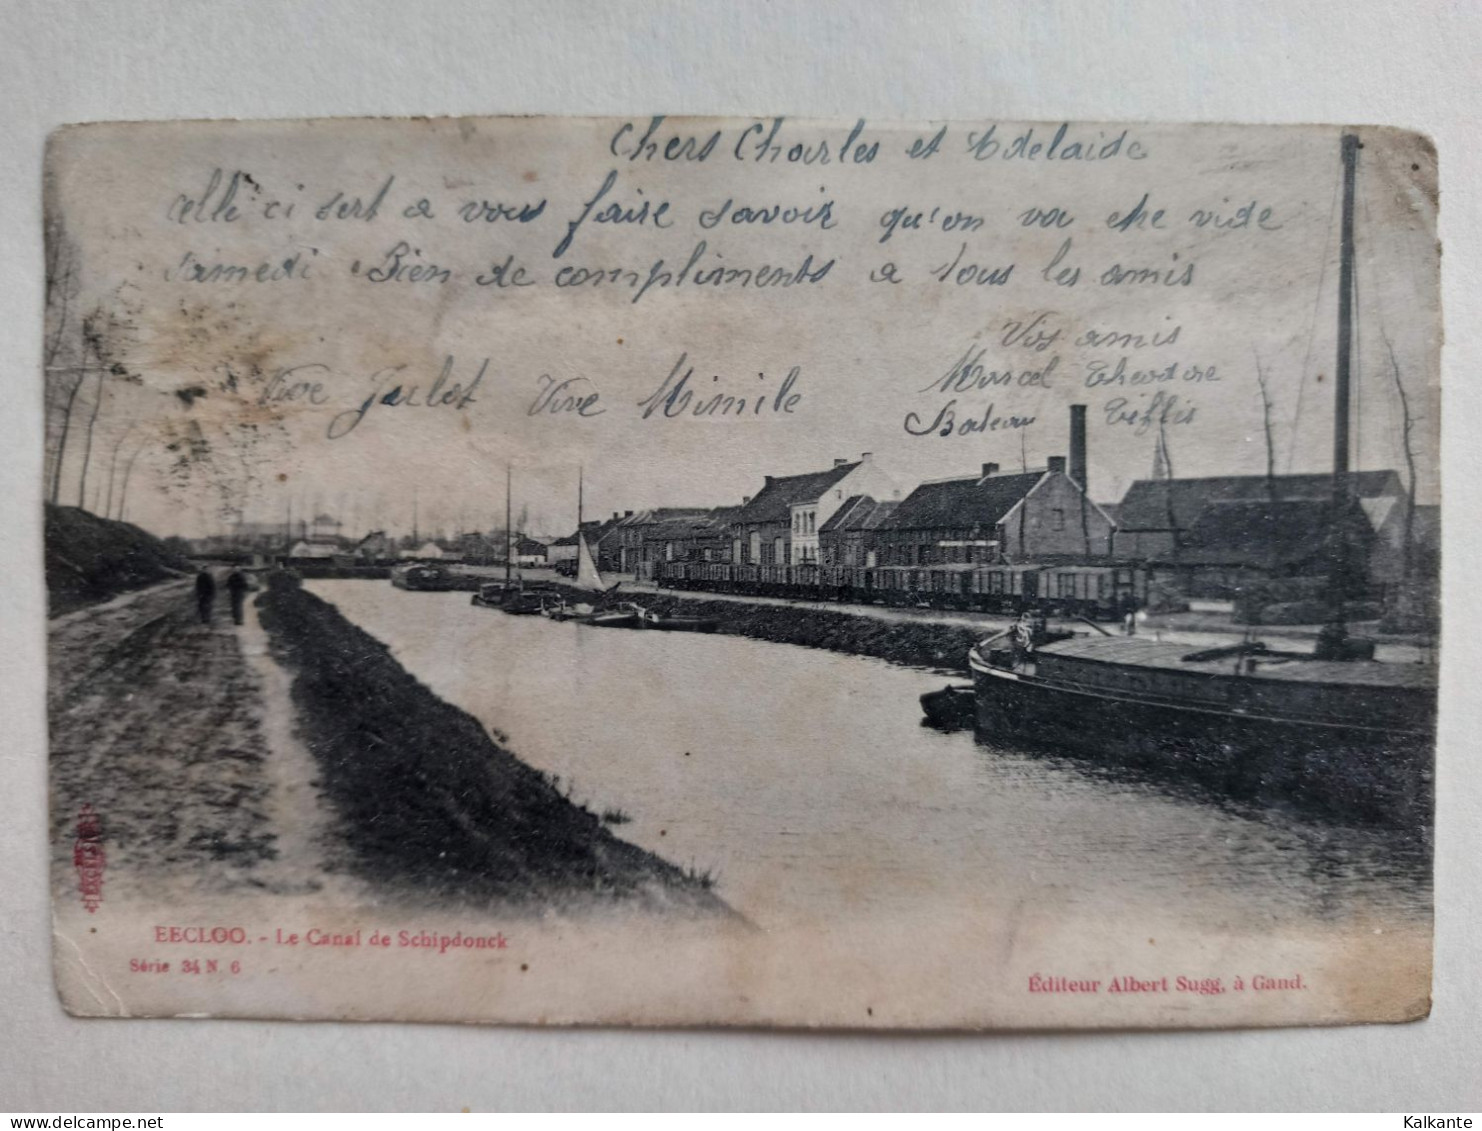 Chers Charles et Adelaide
celle ci sert a vous faire savoir qu'on va etre vide
samedi Bien de compliments a tous les amis
Vos amis
Vive Julot Vive Mimile
Marcel Theodore
Bateau Tiflis
EECLOO. - Le Canal de Schipdonck
Série 34 N. 6
Éditeur Albert Sugg, à Gand.
Kalkante